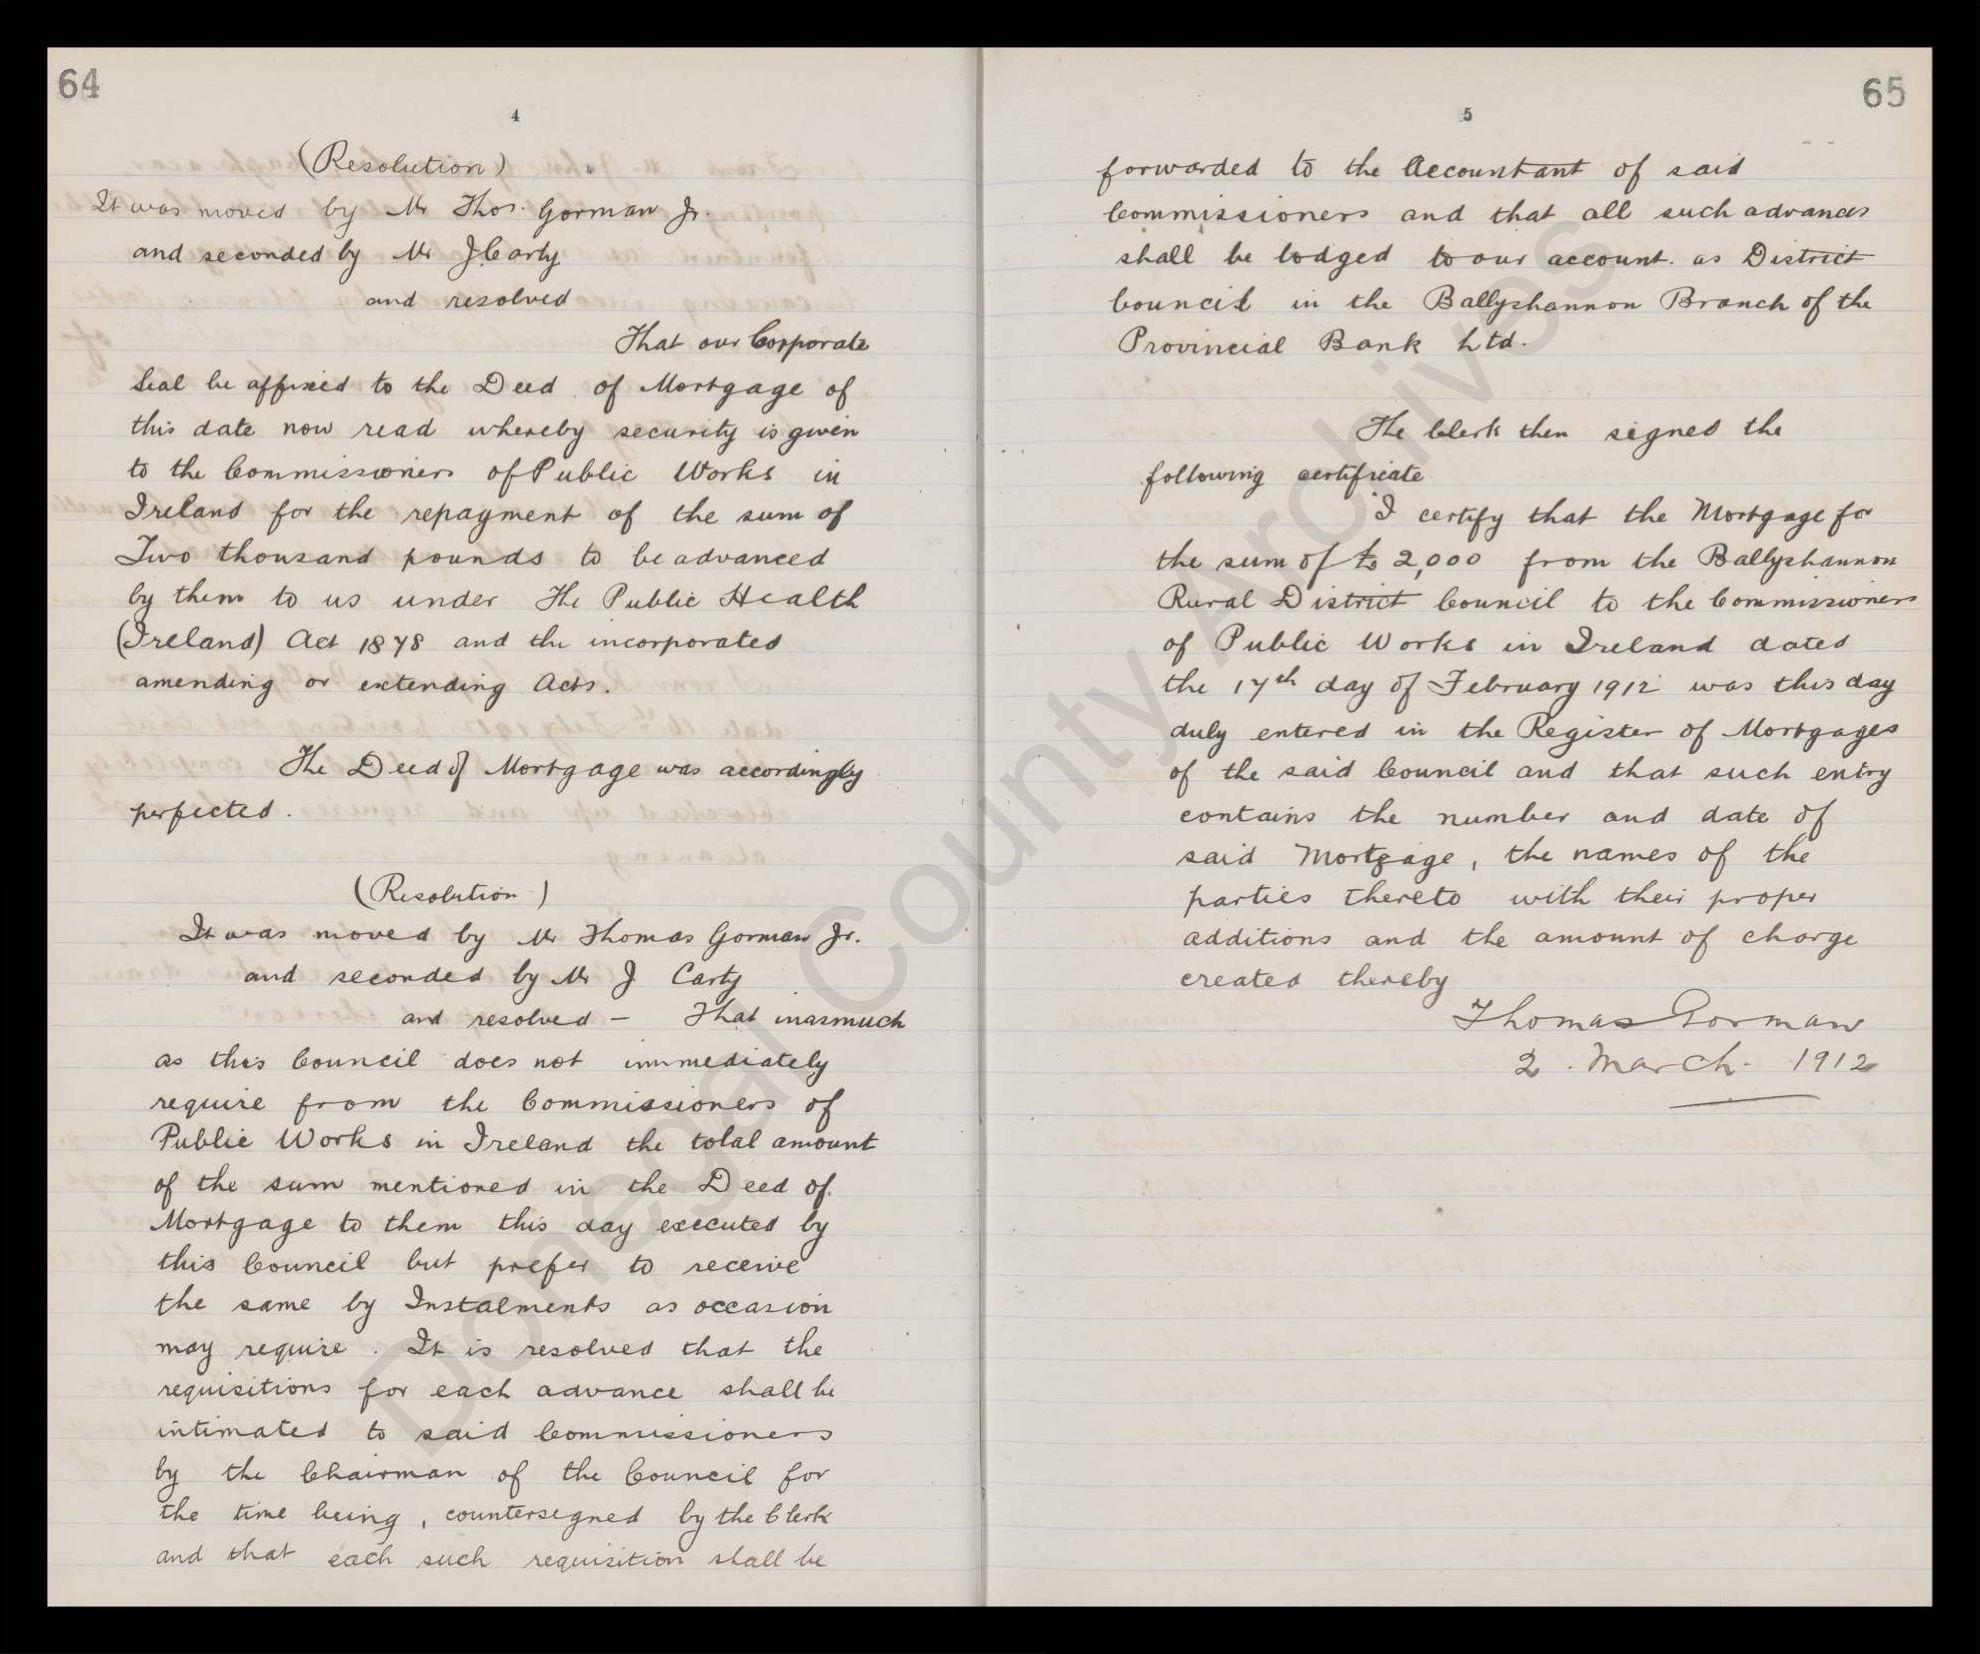 64
4
(Resolution)
It was moved by Mr Thos. Gorman Jr.
and seconded by Mr J Carty
and resolved
That our Corporate
Seal be affixed to the Deed of Mortgage of
this date now read whereby security is given
to the Commissioners of Public Works in
Ireland for the repayment of the sum of
Two thousand pounds to be advanced
by them to us under The Public Health
(Ireland) Act 1878 and the incorporated
amending or extending Acts.
The Deed of Mortgage was accordingly
perfected.
(Resolution)
It was moved by Mr Thomas Gorman Jr.
and seconded by Mr J Carty
and resolved — That inasmuch
as this Council does not immediately
require from the Commissioners of
Public Works in Ireland the total amount
of the sum mentioned in the Deed of
Mortgage to them this day executed by
this Council but prefer to receive
the same by Instalments as occasion
may require. It is resolved that the
requisitions for each advance shall be
intimated to said Commissioners
by the Chairman of the Council for
the time being, countersigned by the Clerk
and that each such requisition shall be
65
5
forwarded to the Accountant of said
Commissioners and that all such advances
shall be lodged to our account. as District
Council in the Ballyshannon Branch of the
Provincial Bank Ltd.
The Clerk then signed the
following certificate
"I certify that the Mortgage for
the sum of £2,000 from the Ballyshannon
Rural District Council to the Commissioners
of Public Works in Ireland dated
the 17th day of February 1912 was this day
duly entered in the Register of Mortgages
of the said Council and that such entry
contains the number and date of
said Mortgage, the names of the
parties thereto with their proper
additions and the amount of charge
created thereby
Thomas Gorman
2. March. 1912
Donegal County Archives